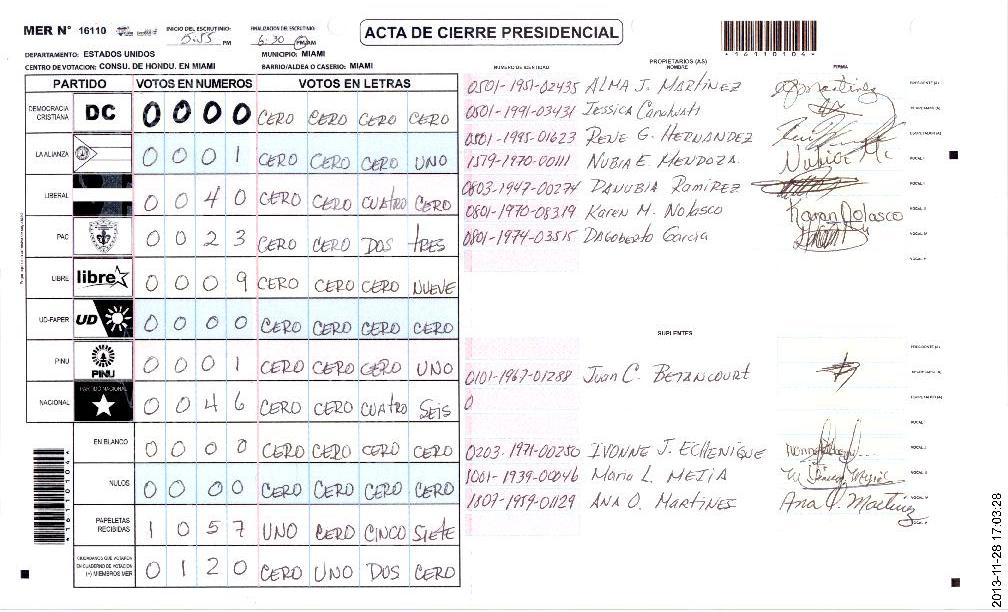 MER Nº 16110 INICIO DEL ESCRUTINIO: 5:55 PM FINALIZACION DEL ESCRUTINIO: 6:30 PM AM
ACTA DE CIERRE PRESIDENCIAL
*16110104*
DEPARTAMENTO: ESTADOS UNIDOS MUNICIPIO: MIAMI
CENTRO DE VOTACION: CONSU. DE HONDU. EN MIAMI BARRIO/ALDEA O CASERIO: MIAMI
PARTIDO VOTOS EN NUMEROS VOTOS EN LETRAS
DEMOCRACIA CRISTIANA DC 0 0 0 0 CERO CERO CERO CERO
LA ALIANZA 0 0 0 1 CERO CERO CERO UNO
LIBERAL 0 0 4 0 CERO CERO CUATRO CERO
PAC 0 0 2 3 CERO CERO DOS TRES
LIBRE libre 0 0 0 9 CERO CERO CERO NUEVE
UD-FAPER UD 0 0 0 0 CERO CERO CERO CERO
PINU PINU 0 0 0 1 CERO CERO CERO UNO
NACIONAL PARTIDO NACIONAL 0 0 4 6 CERO CERO CUATRO SEIS
EN BLANCO 0 0 0 0 CERO CERO CERO CERO
NULOS 0 0 0 0 CERO CERO CERO CERO
PAPELETAS RECIBIDAS 1 0 5 7 UNO CERO CINCO SIETE
CIUDADANOS QUE VOTARON EN CUADERNO DE VOTACION (+) MIEMBROS MER 0 1 2 0 CERO UNO DOS CERO
*16110104*
PROPIETARIOS (AS)
NUMERO DE IDENTIDAD NOMBRE FIRMA
0501-1951-02435 ALMA J. MARTINEZ PRESIDENTE (A)
0801-1991-03431 Jessica Canahuati
0501-1995-01623 RENE G. HERNANDEZ
1519-1970-00111 NUBIA E. MENDOZA VOCAL I
0803-1947-00274 DANUBIA RAMIREZ
0801-1970-08319 Karen M. Nolasco Karen Nolasco
0801-1974-03515 Dagoberto Garcia
SUPLENTES
0101-1967-01288 Juan C. BETANCOURT
0
0203-1971-00250 IVONNE J. ECHENIQUE
1001-1939-00046 Maria L. MEJIA
1807-1959-01129 ANA O. MARTINES Ana O. Martinez
2013-11-28 17:03:28